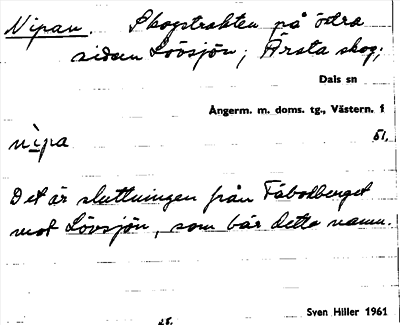 Nipan. Skogstrakten på östra
sidan Lövsjön; Årsta skog;
Dals sn
Ångerm. m. doms. tg., Västern. 1
51.
nipa
Det är sluttningen från Fäbodberget
mot Lövsjön, som bär detta namn.
Sven Hiller 1961
28.